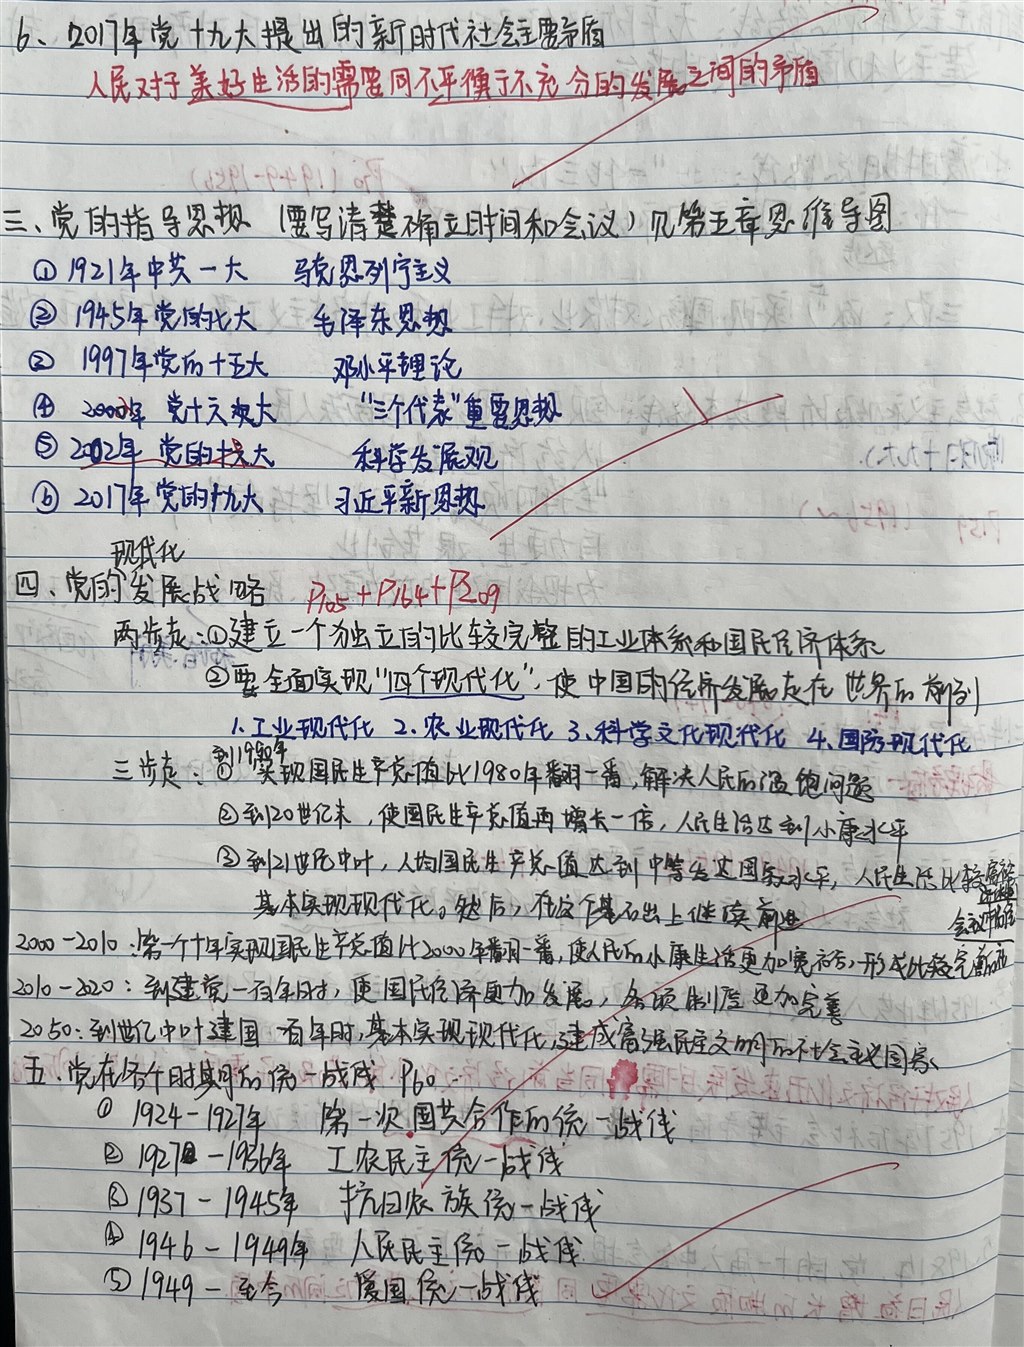 6、2017年党十九大提出的新时代社会主要矛盾
人民对于美好生活的需要同不平衡于不充分的发展之间的矛盾
三、党的指导思想 (要写清楚确立时间和会议) 见第五章思维导图
① 1921年中共一大 马克思列宁主义
② 1945年党的七大 毛泽东思想
③ 1997年党的十五大 邓小平理论
④ 2002年 党十六大 "三个代表"重要思想
⑤ 2002年 党的大 科学发展观
⑥ 2017年党的十九大 习近平新思想
现代化
四、党的发展战略 P105+P164+P209
两步走:①建立一个独立的比较完整的工业体系和国民经济体系
②要全面实现"四个现代化",使中国的经济发展走在世界的前列
1.工业现代化 2.农业现代化 3、科学文化现代化 4、国防现代化
到1990年
三步走:① 实现国民生产总值比1980年翻一番,解决人民的温饱问题
②到20世纪末,使国民生产总值再增长一倍,人民生活达到小康水平
③到21世纪中叶,人均国民生产总值达到中等发达国家水平,人民生活比较富裕
基本实现现代化。然后,在这个基础上继续前进
2000-2010:第一个十年实现国民生产总值比2000年翻一番,使人民的小康生活更加宽裕,形成比较完善的
2010-2020:到建党一百年时,使国民经济更加发展,各项制度更加完善
2050:到世纪中叶建国一百年时,基本实现现代化,建成富强民主文明的社会主义国家
五、党在各个时期的统一战线 P60
① 1924-1927年 第一次国共合作的统一战线
② 1927-1936年 工农民主统一战线
③ 1937-1945年 抗日民族统一战线
④ 1946-1949年 人民民主统一战线
⑤ 1949-至今 爱国统一战线